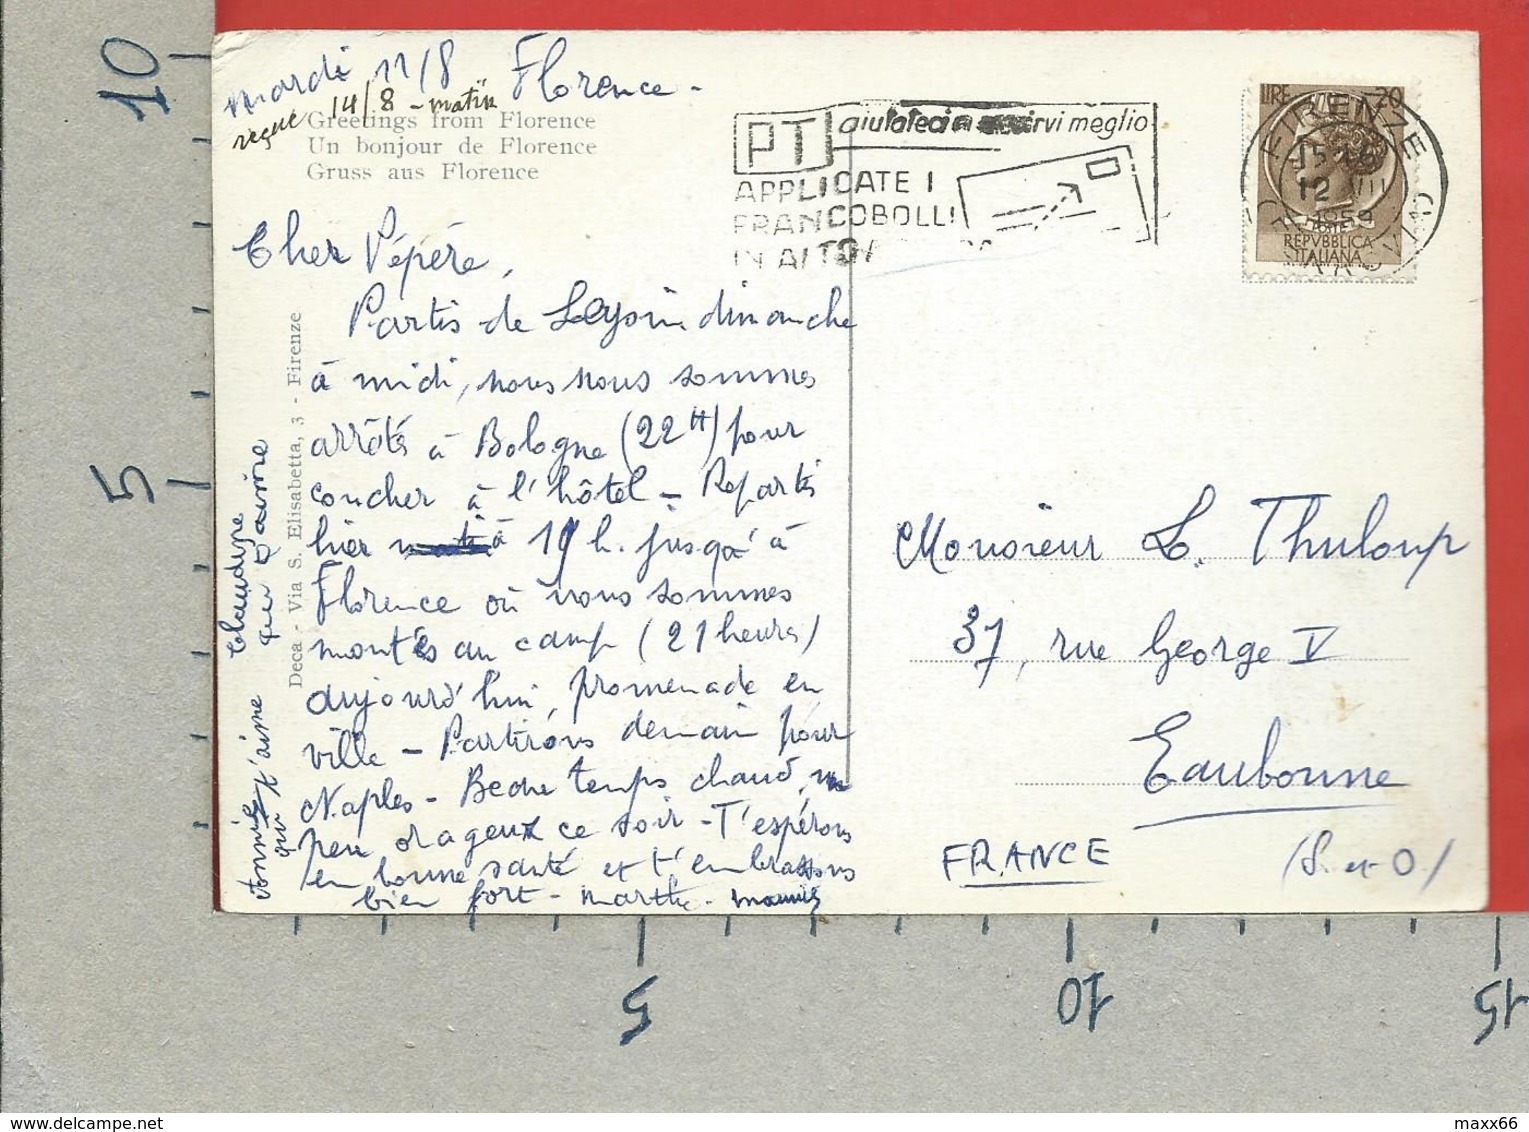 mardi 11/8 Florence -
reçue 14/8 - matin
Greetings from Florence
Un bonjour de Florence
Gruss aus Florence
PT aiutateci a servirvi meglio
APPLICATE I
FRANCOBOLLI
IN ALTO A
LIRE 20
REPVBBLICA
ITALIANA
FIRENZE
15-16
12 VIII
1959
FERROVIA
Cher Pépère,
Partis de Leysin dimanche
à midi, nous nous sommes
arrêtés à Bologne (22H) pour
coucher à l'hôtel - Repartis
hier à h. jusqu'à
Florence où nous sommes
montés au camp (21 heures)
aujourd'hui, promenade en
ville - Partirons demain pour
Naples - Beau temps chaud, un
peu orageux ce soir - T'espérons
en bonne santé et t'embrassons
bien fort - Marthe -
Deca - Via S. Elisabetta, 3 - Firenze
Claudine
Annie
qui t'aime
Monsieur L. Thuloup
37, rue George V
Eaubonne
(S. et O)
FRANCE
10
5
5
10
15
maxx66